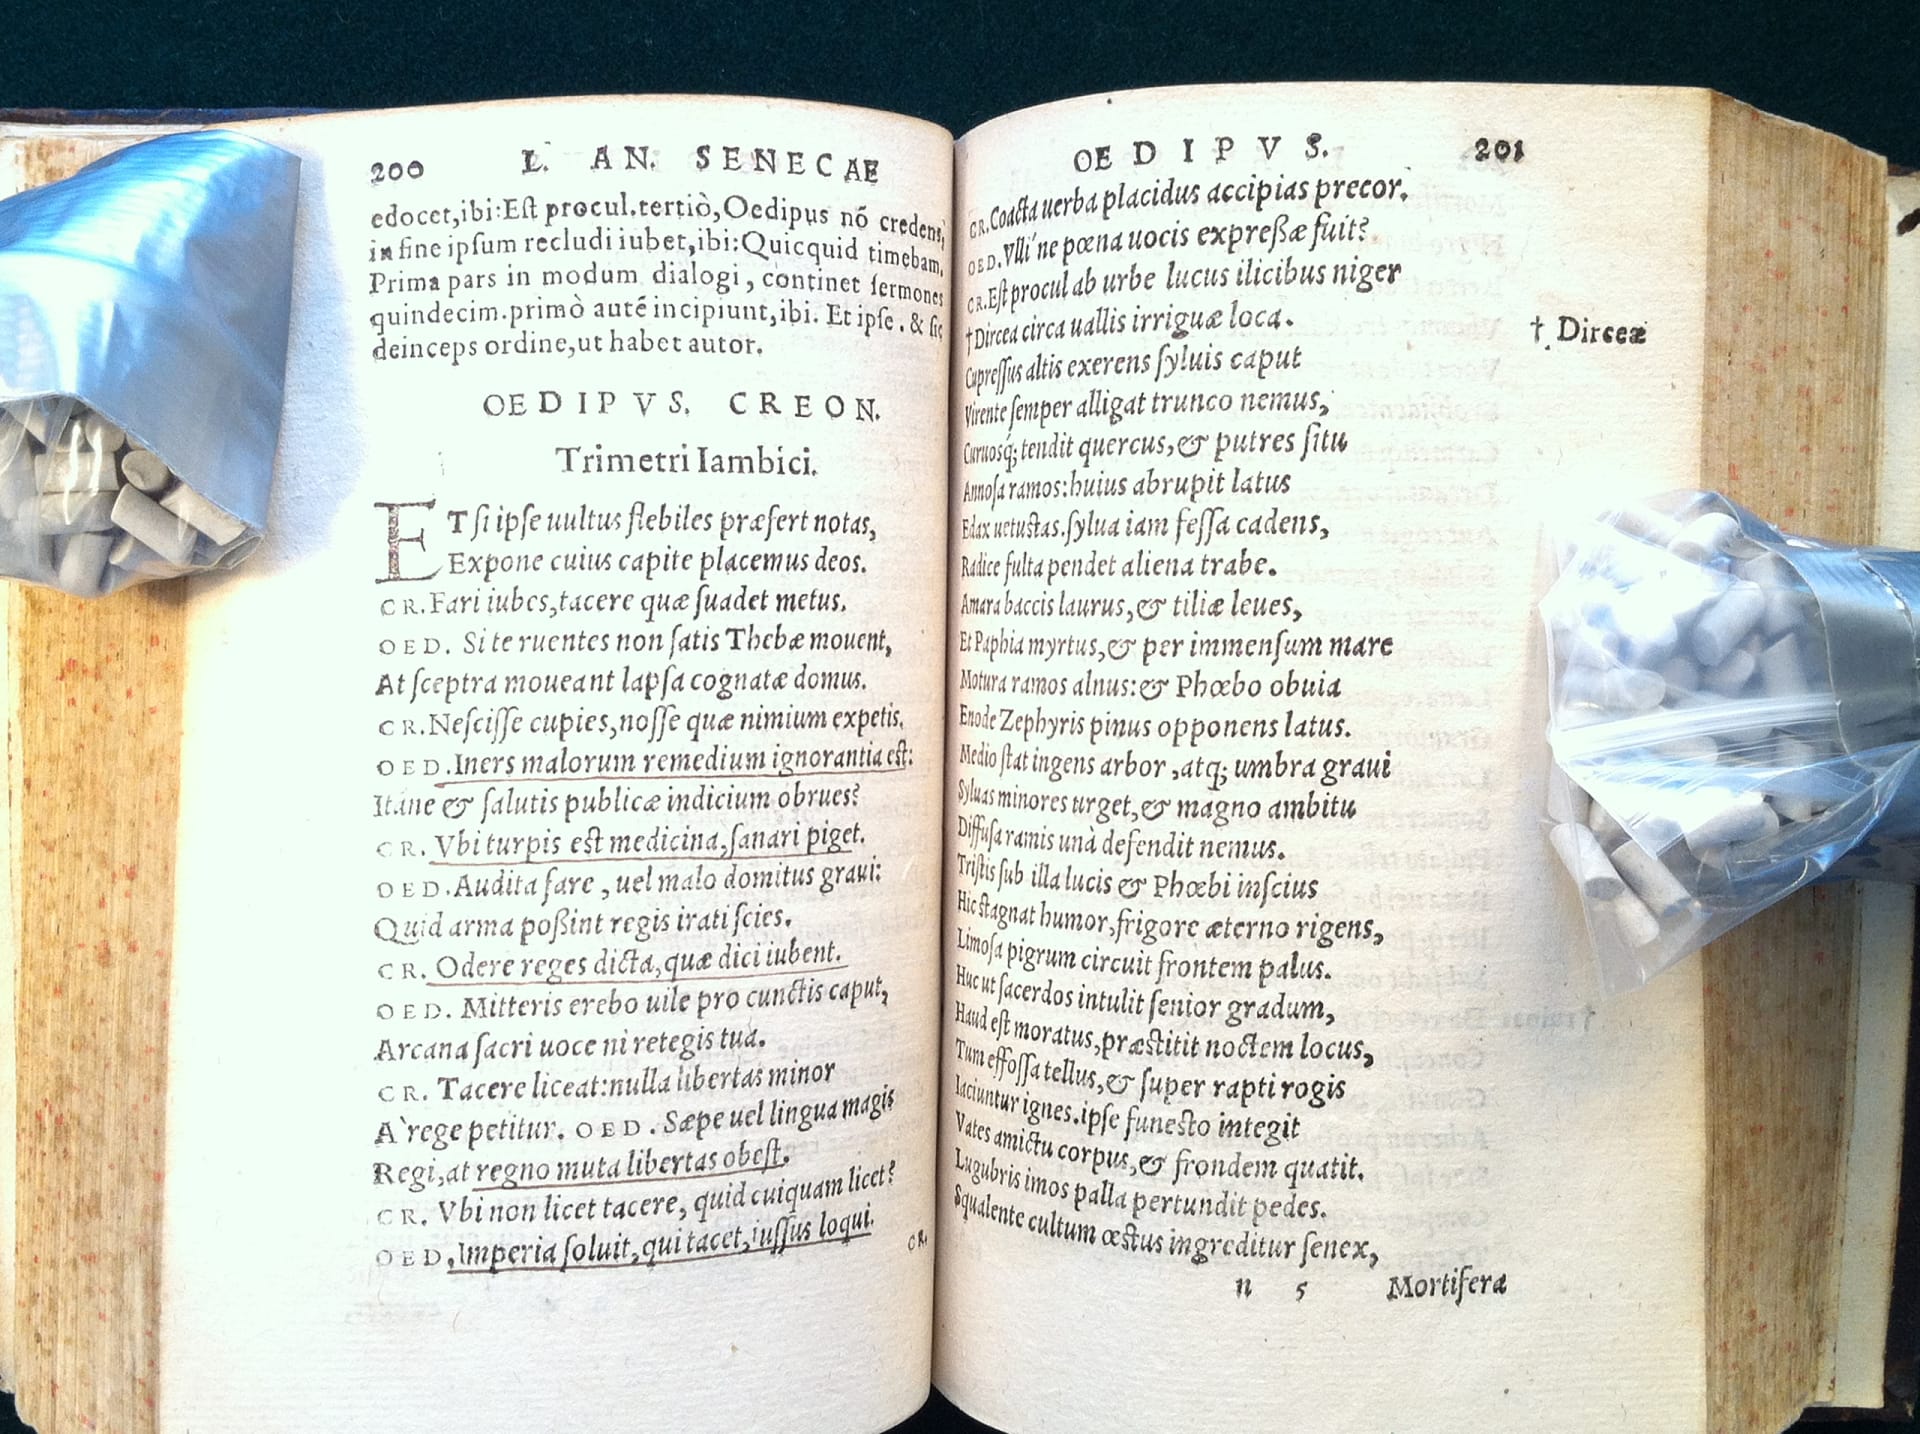 200 L. AN. SENECAE
edocet,ibi:Est procul.tertiò,Oedipus nõ credens,
in fine ipsum recludi iubet,ibi:Quicquid timebam.
Prima pars in modum dialogi, continet sermones
quindecim.primò autẽ incipiunt,ibi. Et ipse. & sic
deinceps ordine,ut habet autor.
OEDIPVS. CREON.
Trimetri Iambici.
ET si ipse uultus flebiles præfert notas,
Expone cuius capite placemus deos.
CR.Fari iubes,tacere quæ suadet metus.
OED. Si te ruentes non satis Thebæ mouent,
At sceptra moueant lapsa cognatæ domus.
CR.Nescisse cupies,nosse quæ nimium expetis.
OED.Iners malorum remedium ignorantia est:
Itáne & salutis publicæ indicium obrues?
CR. Vbi turpis est medicina,sanari piget.
OED.Audita fare, uel malo domitus graui:
Quid arma poßint regis irati scies.
CR. Odere reges dicta,quæ dici iubent.
OED. Mitteris erebo uile pro cunctis caput,
Arcana sacri uoce ni retegis tua.
CR. Tacere liceat:nulla libertas minor
A`rege petitur. OED. Sæpe uel lingua magis
Regi,at regno muta libertas obest.
CR. Vbi non licet tacere, quid cuiquam licet?
OED.Imperia soluit,qui tacet,iussus loqui.
CR.
OEDIPVS. 201
CR.Coacta uerba placidus accipias precor.
OED.Vlli´ne pœna uocis expreßæ fuit?
CR.Est procul ab urbe lucus ilicibus niger
†Dircea circa uallis irriguæ loca.
† Dirceæ
Cupressus altis exerens syluis caput
Virente semper alligat trunco nemus,
Curuosq́; tendit quercus,& putres situ
Annosa ramos:huius abrupit latus
Edax uetustas.sylua iam fessa cadens,
Radice fulta pendet aliena trabe.
Amara baccis laurus,& tiliæ leues,
Et Paphia myrtus,& per immensum mare
Motura ramos alnus:& Phœbo obuia
Enode Zephyris pinus opponens latus.
Medio stat ingens arbor,atq; umbra graui
Syluas minores urget,& magno ambitu
Diffusa ramis unà defendit nemus.
Tristis sub illa lucis & Phœbi inscius
Hic stagnat humor,frigore æterno rigens,
Limosa pigrum circuit frontem palus.
Huc ut sacerdos intulit senior gradum,
Haud est moratus,præstitit noctem locus,
Tum effossa tellus,& super rapti rogis
Iaciuntur ignes.ipse funesto integit
Vates amictu corpus,& frondem quatit.
Lugubris imos palla pertundit pedes.
Squalente cultum œstus ingreditur senex,
n 5 Mortifera